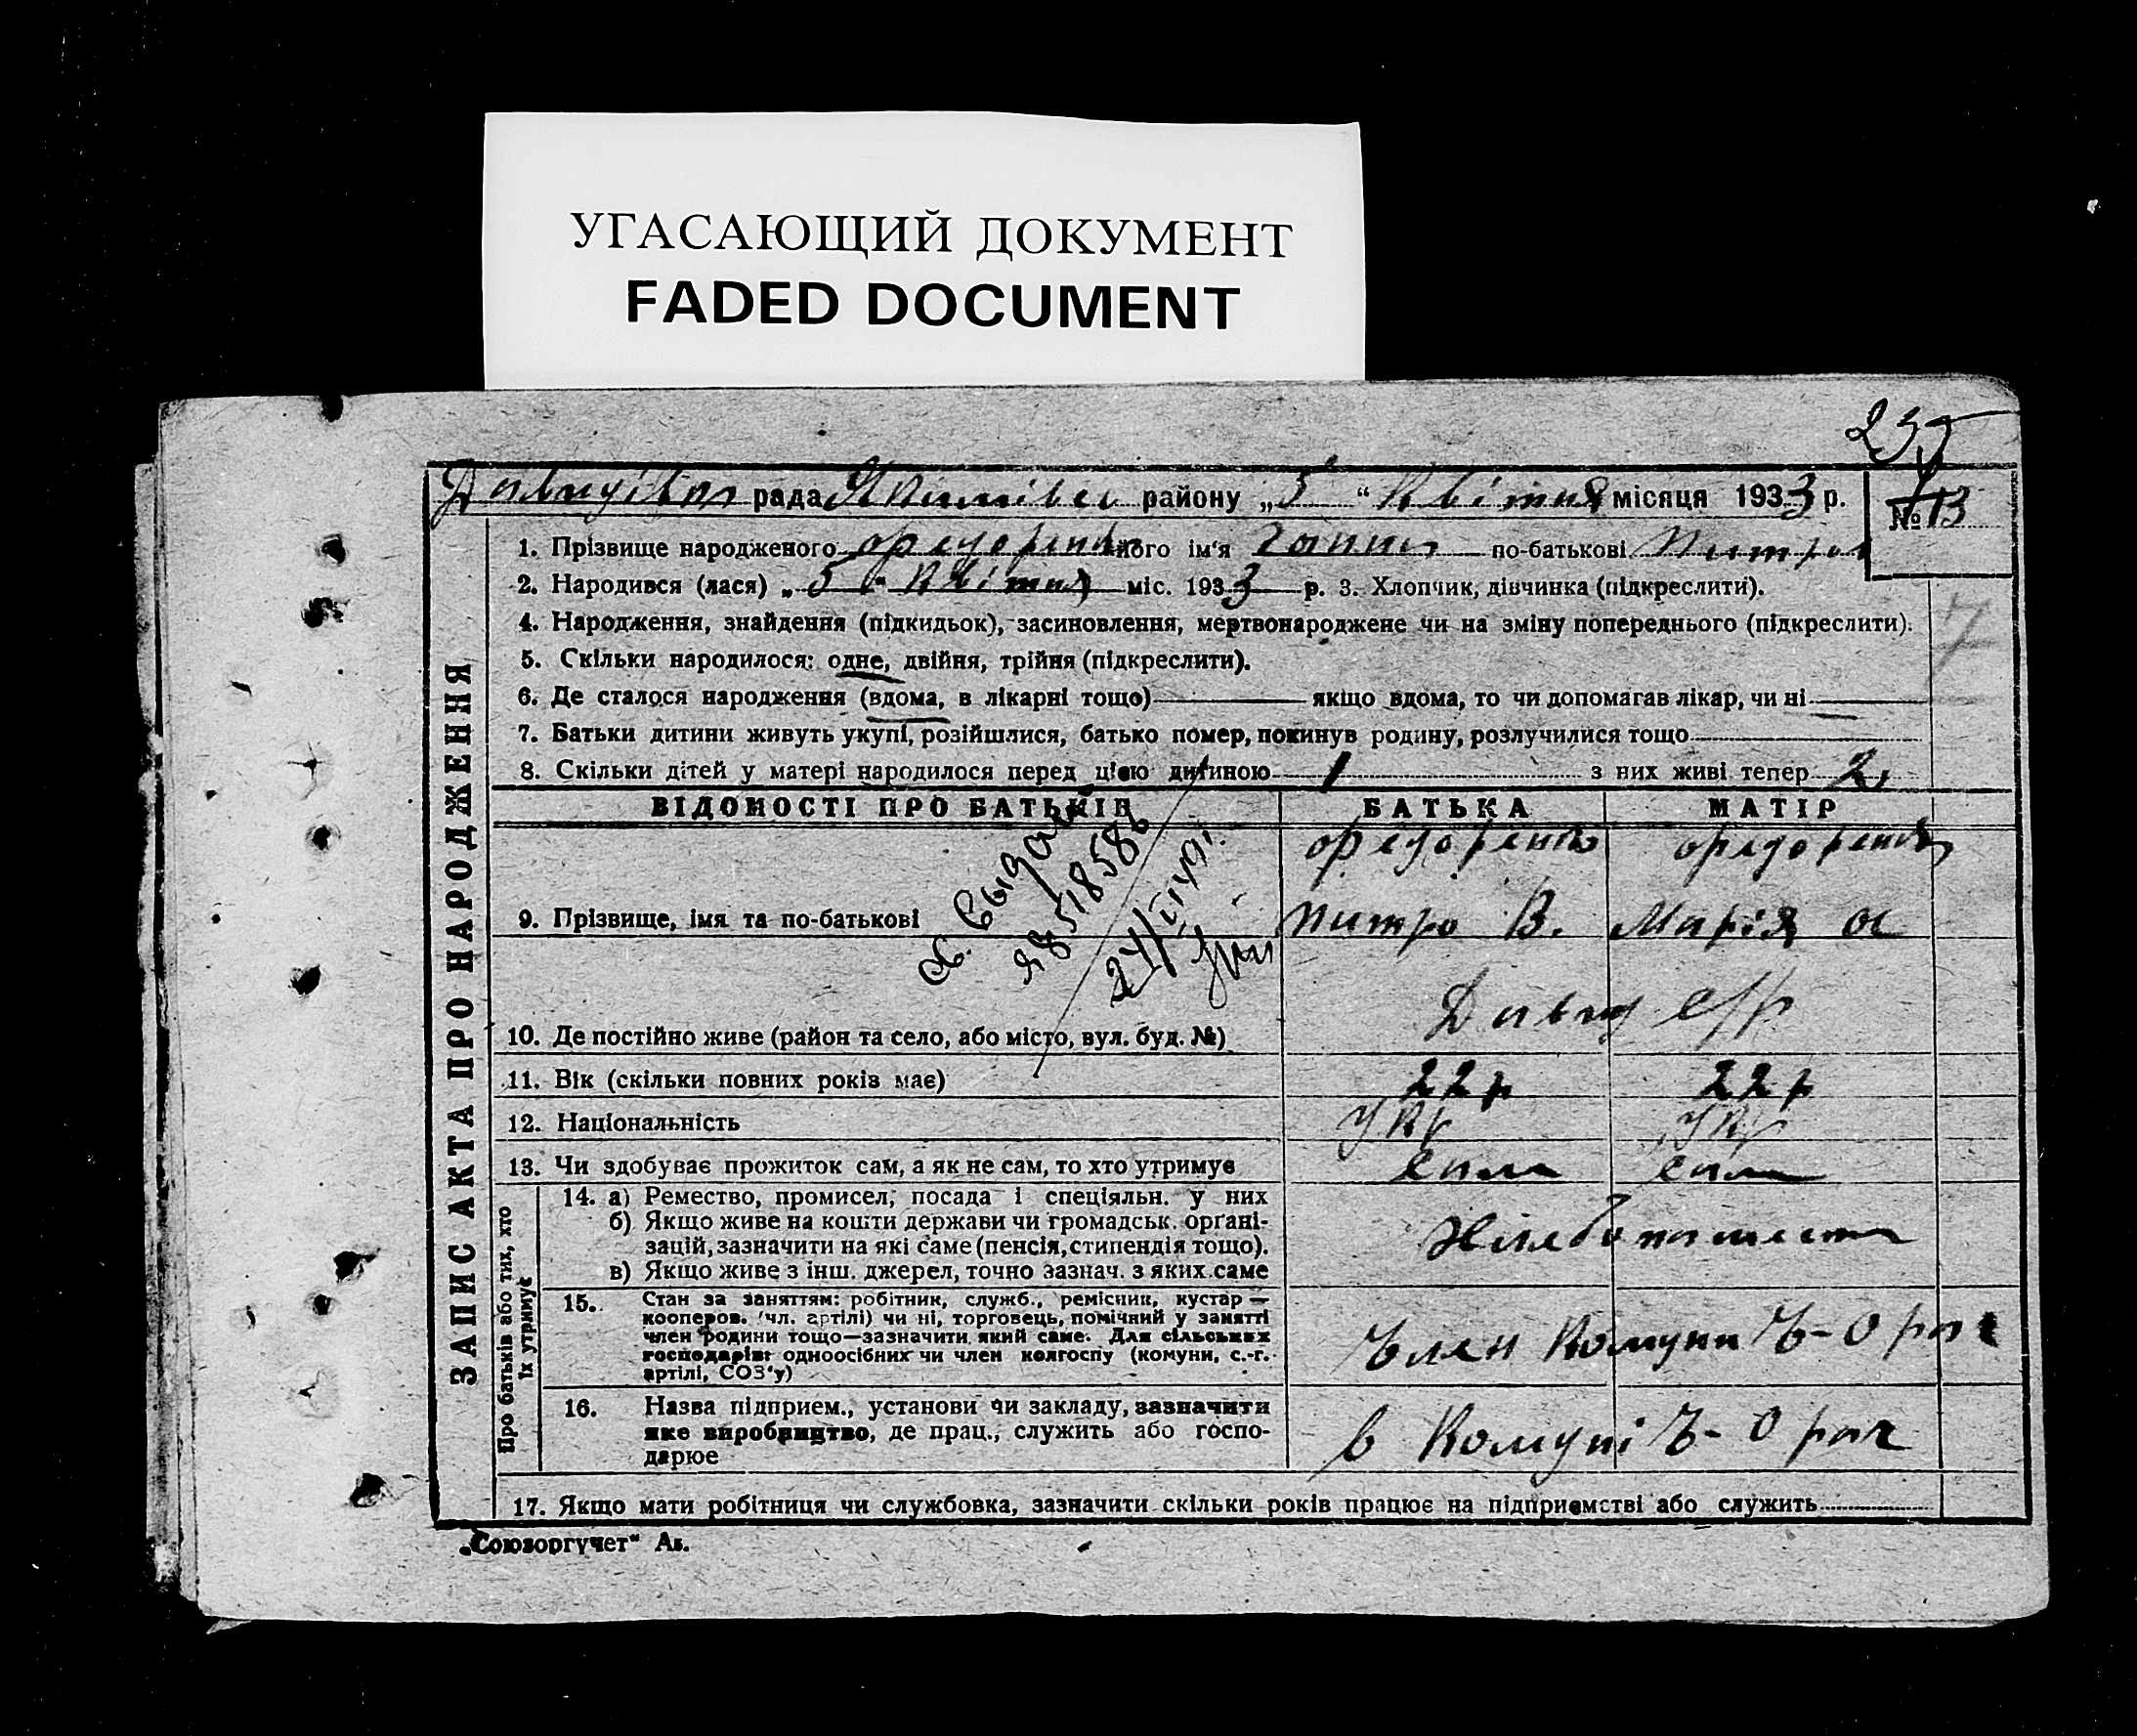 УГАСАЮЩИЙ ДОКУМЕНТ
FADED DOCUMENT
235
рада району „5“ Квітня місяця 1933 р.
№ 13
ЗАПИС АКТА ПРО НАРОДЖЕННЯ
1. Прізвище народженого його ім'я по-батькові
2. Народився (лася) „5" Квітня міс. 1933 р. 3. Хлопчик, дівчинка (підкреслити).
4. Народження, знайдення (підкидьок), засиновлення, мертвонароджене чи на зміну попереднього (підкреслити).
5. Скільки народилося: одне, двійня, трійня (підкреслити).
6. Де сталося народження (вдома, в лікарні тощо) якщо вдома, то чи допомагав лікар, чи ні
7. Батьки дитини живуть укупі, розійшлися, батько помер, покинув родину, розлучилися тощо
8. Скільки дітей у матері народилося перед цією дитиною 1 з них живі тепер 2
ВІДОМОСТІ ПРО БАТЬКІВ БАТЬКА МАТІР
9. Прізвище, імя та по-батькові Питро В. Марія
10. Де постійно живе (район та село, або місто, вул. буд. №) Давид с/р
11. Вік (скільки повних років має) 22 р 22 р
12. Національність Укр Укр
13. Чи здобуває прожиток сам, а як не сам, то хто утримує сам сам
Про батьків або тих, хто їх утримує
14. а) Ремество, промисел, посада і спеціяльн. у них
б) Якщо живе на кошти держави чи громадськ. органі-
зацій, зазначити на які саме (пенсія, стипендія тощо).
в) Якщо живе з інш. джерел, точно зазнач. з яких саме
15. Стан за заняттям: робітник, служб., ремісник, кустар—
кооперов. (чл. артілі) чи ні, торговець, помічний у занятті
член родини тощо—зазначити який саме. Для сільських
господарів: одноосібних чи член колгоспу (комуни, с.-г.
артілі, СОЗ'у)
Член Комуни
16. Назва підприєм., установи чи закладу, зазначити
яке виробництво, де прац., служить або госпо-
дарює
в Комуні
17. Якщо мати робітниця чи службовка, зазначити скільки років працює на підприємстві або служить
„Союзоргучет“